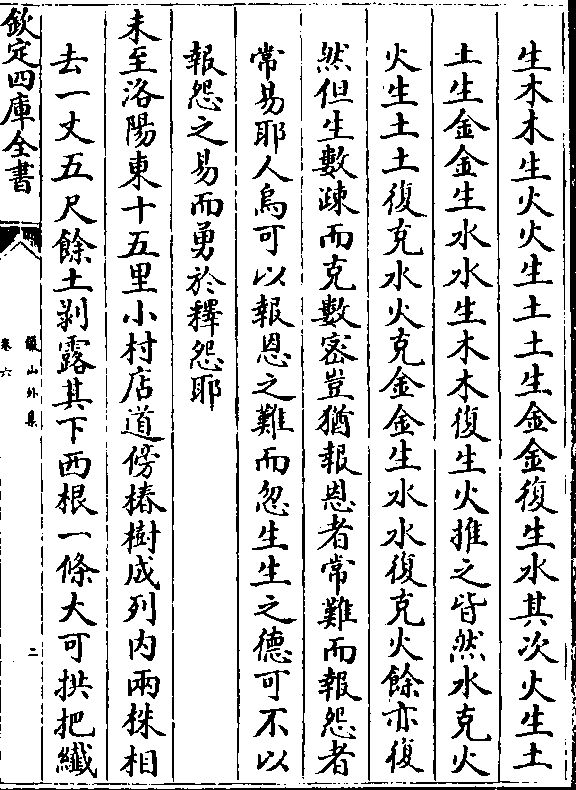 生木木生火火生土土生金金復生水其次火生土
土生金金生水水生木木復生火推之皆然水克火
火生土土復克水火克金金生水水復克火餘亦復
然但生數疎而克數密豈猶報恩者常難而報怨者
常易耶人烏可以報恩之難而忽生生之德可不以
報怨之易而勇於釋怨耶
未至洛陽東十五里小村店道傍椿樹成列内兩株相
去一丈五尺餘土剥露其下西根一條大可拱把纖
欽定四庫全書
儼山外集
卷六
二